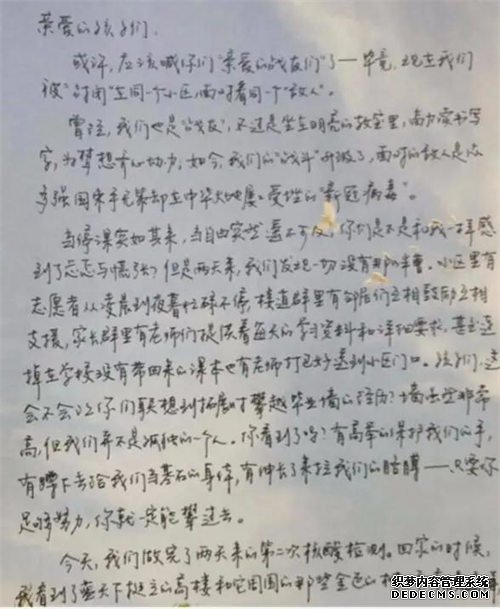 亲爱的孩子们,
或许,应该喊你们"亲爱的战友们"了——毕竟,现在我们
被"封闭"在同一个小区,面对着同一个"敌人"。
曾经,我们也是"战友",不过是坐在明亮的教室里,奋力读书写
字,为梦想齐心协力,如今,我们的"战斗"升级了,面对的敌人是众
多强国束手无策却在中华大地屡屡受挫的"新冠病毒"。
当停课突如其来,当自由突然遥不可及,你们是不是和我一样感
到了忐忑与慌张?但是两天来,我们发现一切没有那么糟。小区里有
志愿者从凌晨到夜暮忙碌不停,楼道群里有邻居们互相鼓励互相
支援,家长群里有老师们提供着每天的学习资料和详细要求,甚至连
掉在学校没有带回来的课本也有老师打包好送到小区门口。孩子们,这
会不会让你们联想到拓展时攀越毕业墙的经历?墙虽然那么
高,但我们并不是孤独的一个人。你看到了吗?有高举的保护我们的手,
有蹲下去给我们当基石的身体,有伸长了来拉我们的胳膊——只要你
足够努力,你就一定能攀过去。
今天,我们做完了两天来的第二次核酸检测。回家的时候,
我看到了蓝天下挺立的高楼和它周围的那些金色的
纺织服装机械网
www.zhidaoci.com